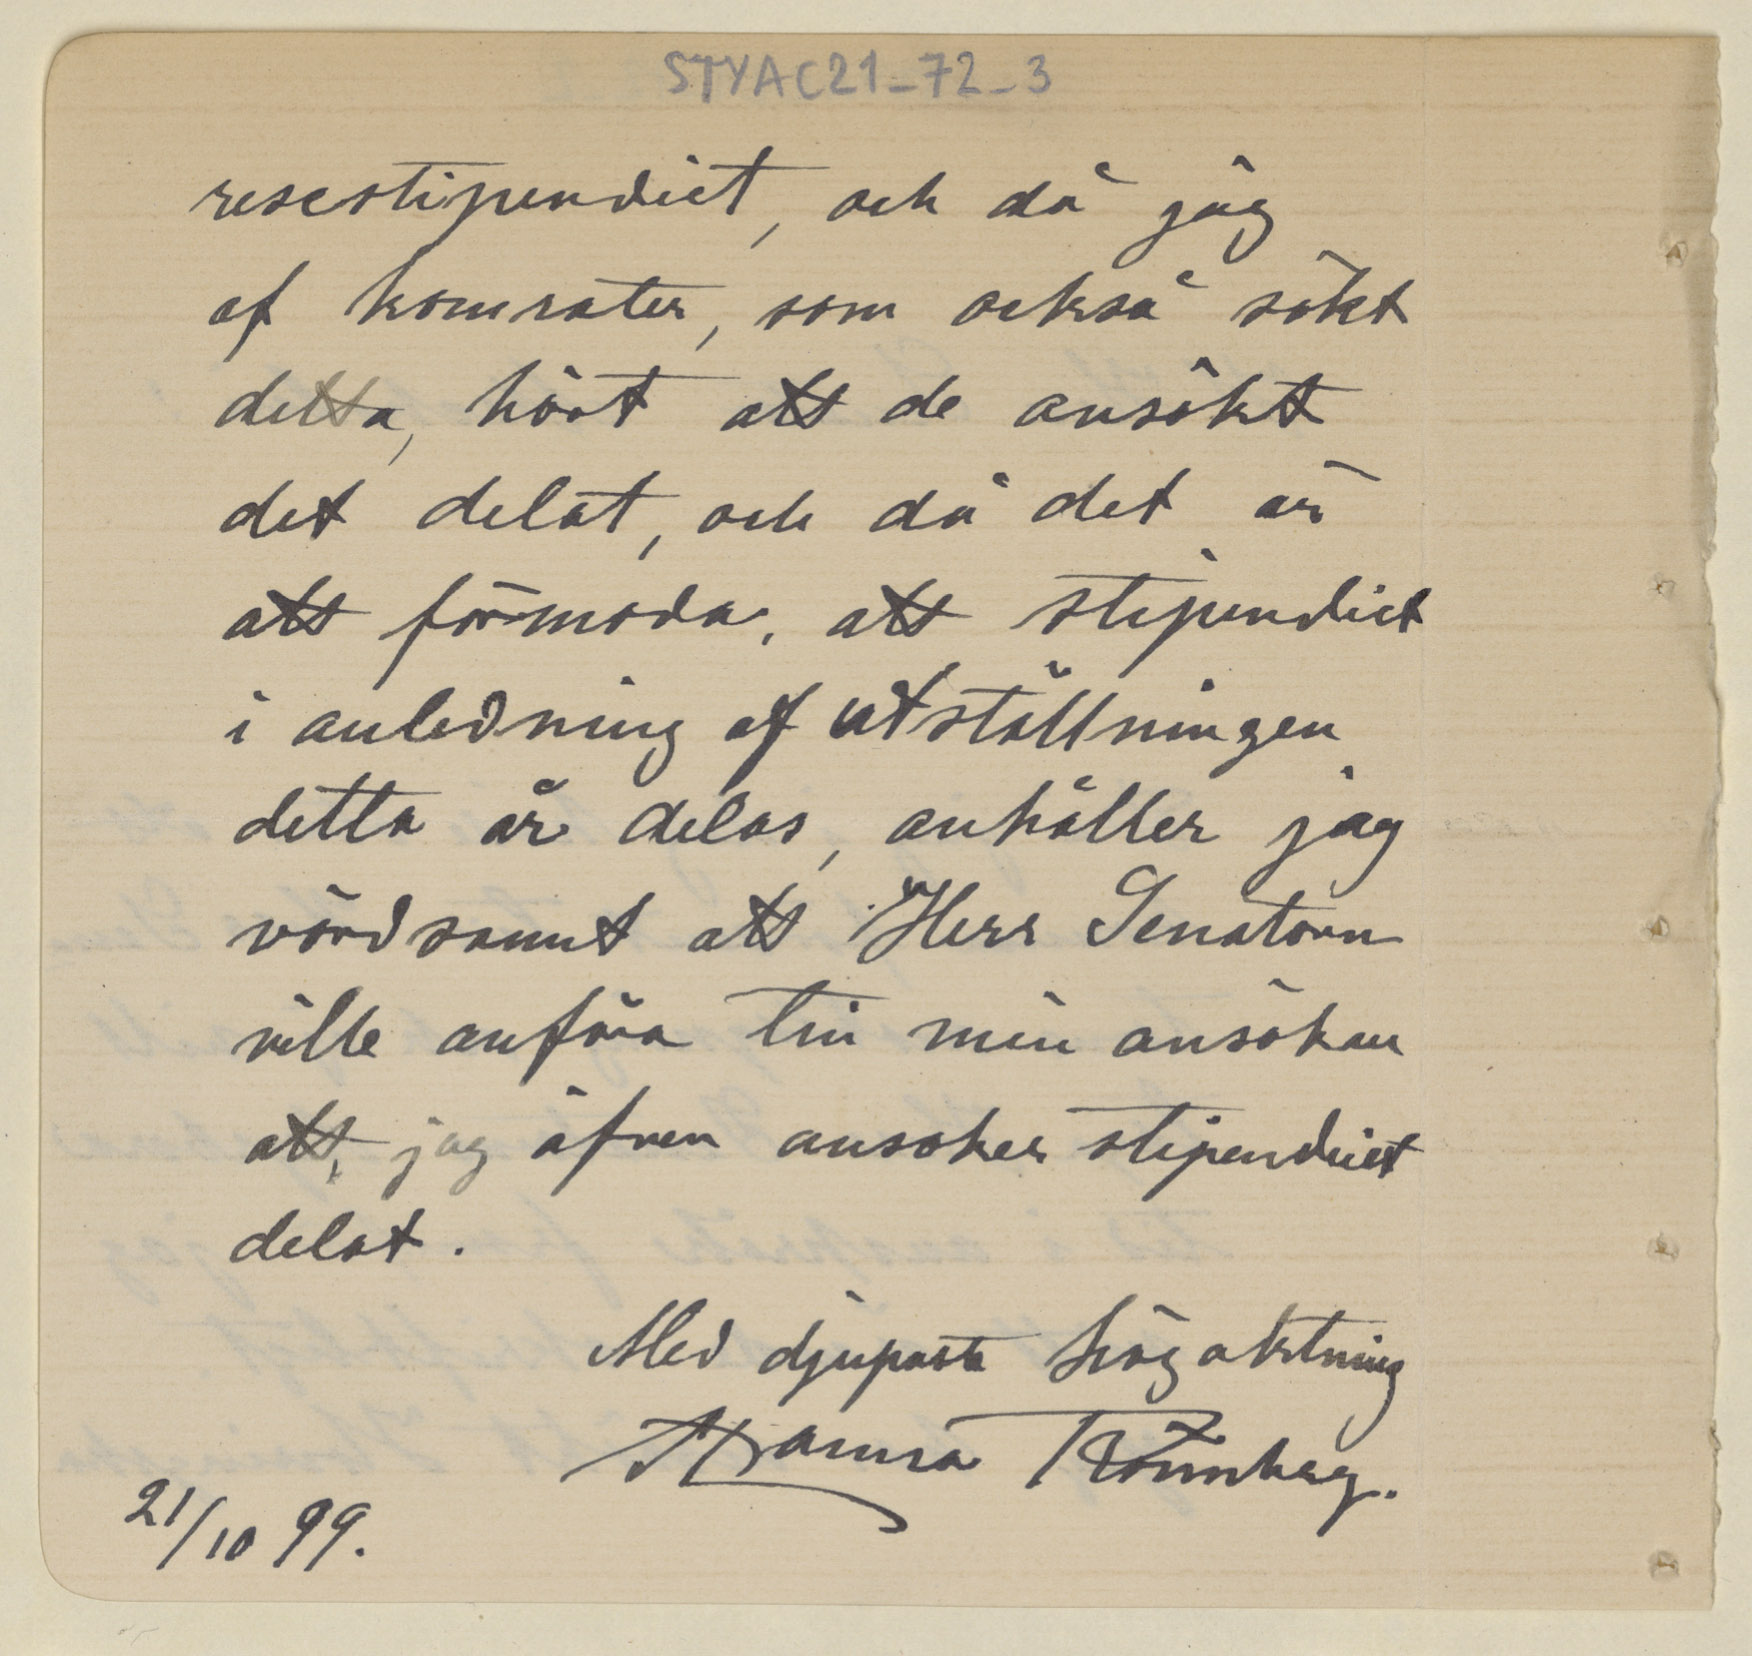 STYAC21_72_3
resestipendiet, och då jag
af komrater, som också sökt
detta, hört att de ansökt
det delat, och då det är
att förmoda, att stipendiet
i anledning af utställningen
detta år delas, anhåller jag
vördsamt att Herr Senatorn
ville anföra till min ansökan
att, jag äfven ansöker stipendiet
delat.
Med djupaste högaktning
Hanna Rönnberg.
21/10 99.